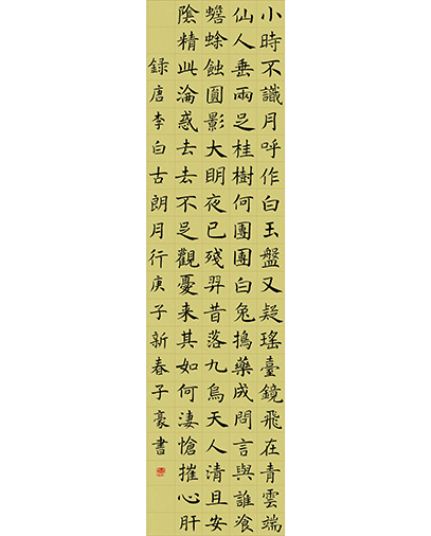 小時不識月呼作白玉盤又疑瑤臺鏡飛在青雲端
仙人垂兩足桂樹何團團白兔搗藥成問言與誰飡
蟾蜍蝕圓影大明夜已殘羿昔落九烏天人清且安
陰精此淪惑去去不足觀憂來其如何淒愴摧心肝
錄唐李白古朗月行庚子新春子豪書